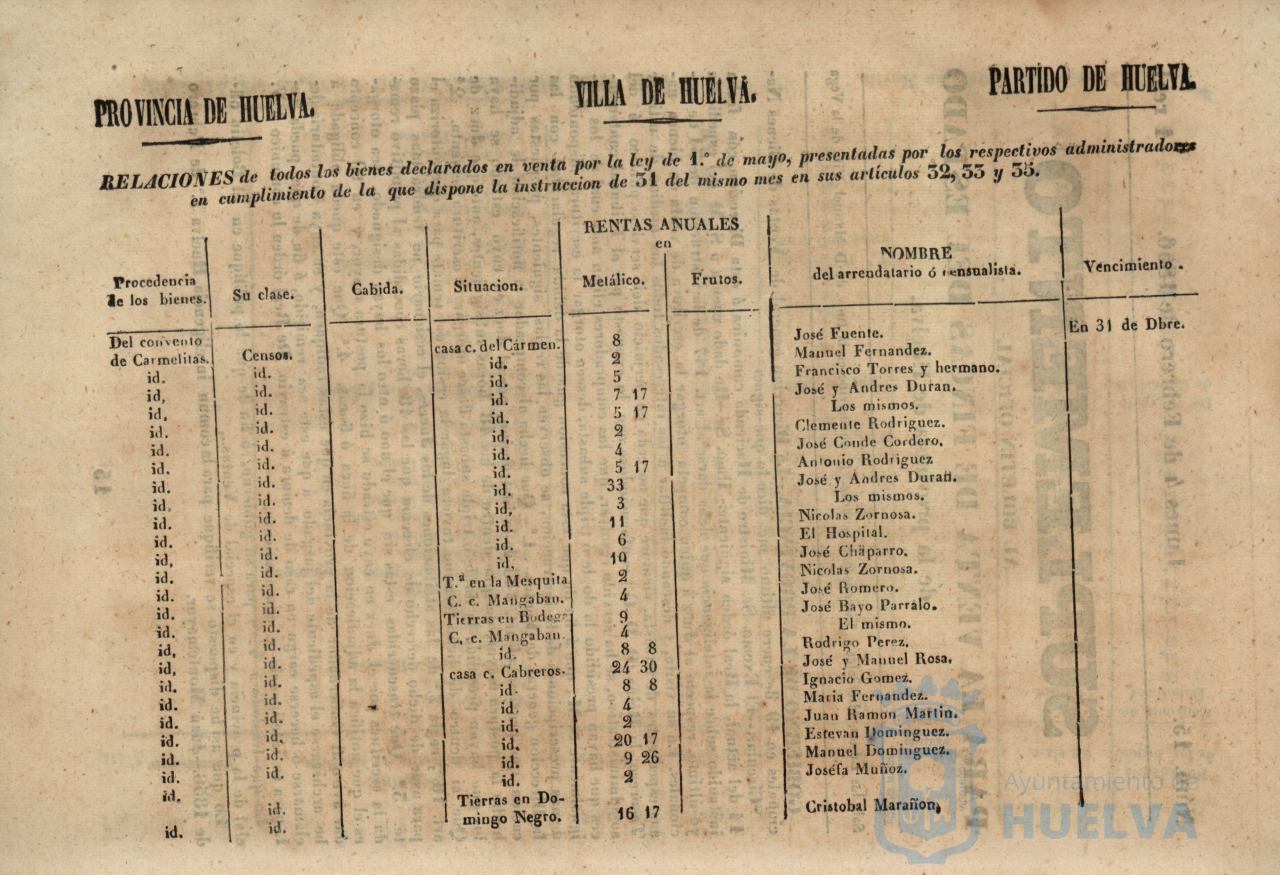 PROVINCIA DE HUELVA. VILLA DE HUELVA. PARTIDO DE HUELVA.
RELACIONES de todos los bienes declarados en venta por la ley de 1.º de mayo, presentadas por los respectivos administradores
en cumplimiento de la que dispone la instruccion de 31 del mismo mes en sus artículos 32, 33 y 35.
RENTAS ANUALES
en
Procedencia de los bienes. Su clase. Cabida. Situacion. Metálico. Frutos. NOMBRE del arrendatario ó censualista. Vencimiento.
Del convento
de Carmelitas. Censos. casa c. del Cármen. 8 José Fuente. En 31 de Dbre.
id. id. id. 2 Manuel Fernandez.
id, id. id. 5 Francisco Torres y hermano.
id, id. id. 7 17 José y Andres Duran.
id. id. id. 5 17 Los mismos.
id. id. id, 2 Clemente Rodriguez.
id. id. id. 4 José Conde Cordero,
id. id. id. 5 17 Antonio Rodriguez
id, id. id. 33 José y Andres Duran.
id. id. id, 3 Los mismos.
id. id. id. 11 Nicolas Zornosa.
id, id. id. 6 El Hospital.
id. id. id, 10 José Chaparro.
id. id. T.ª en la Mesquita 2 Nicolas Zornosa.
id. id. C. c. Mangaban. 4 José Romero.
id. id. Tierras en Bodega 9 José Bayo Parralo.
id, id. C, c. Mangaban. 4 El mismo.
id, id. id. 8 8 Rodrigo Perez,
id. id. casa c. Cabreros. 24 30 José y Manuel Rosa,
id. id. id. 8 8 Ignacio Gomez.
id. id. id. 4 Maria Fernandez.
id. id. id. 2 Juan Ramon Martin.
id. id. id. 20 17 Estevan Dominguez.
id. id. id. 9 26 Manuel Dominguez.
id. id. id. 2 Josefa Muñoz.
id. id. Tierras en Do-
mingo Negro. 16 17 Cristobal Marañon,
Ayuntamiento de
HUELVA